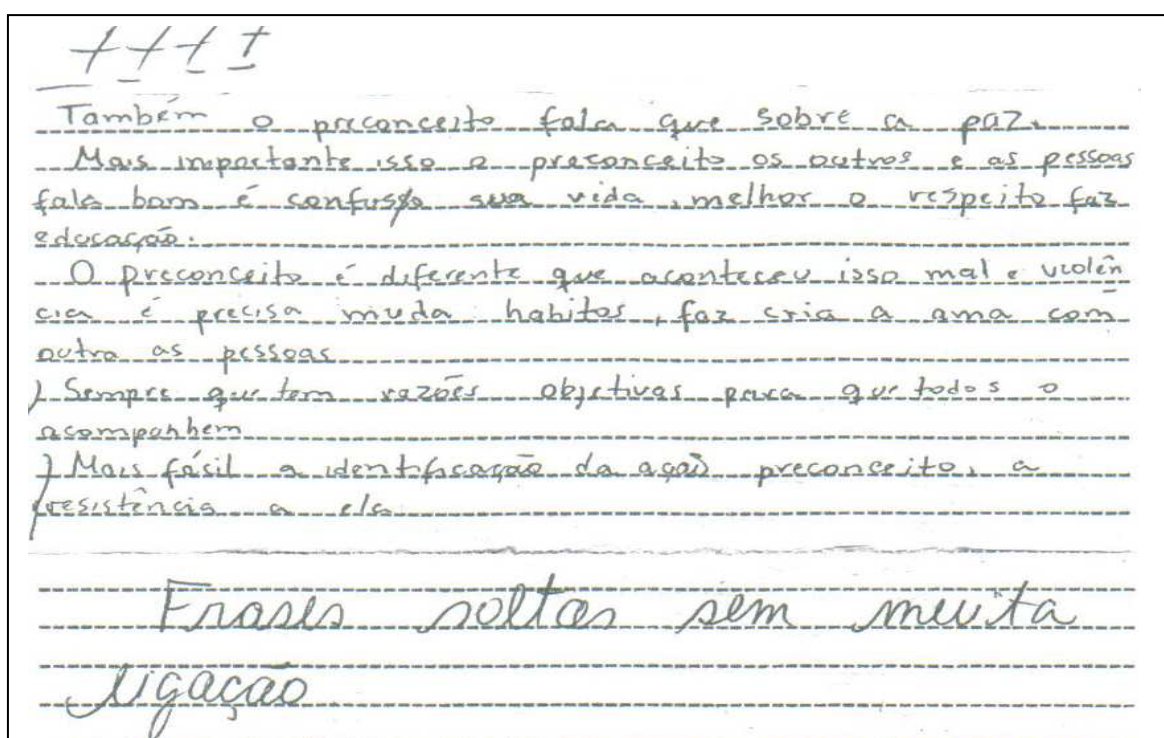 Também o preconceito fala que sobre a paz.
Mais importante isso o preconceito os outros e as pessoas
fala bom é confusão sua vida, melhor o respeito faz
educação.
O preconceito é diferente que aconteceu isso mal e violên
cia é precisa muda habitos, faz cria a ama com
outra as pessoas
) Sempre que tem razões objetivas para que todos o
acompanhem
) Mais fásil a identificação da ação preconceito, a
resistência a ela
Frases soltas sem muita
ligação